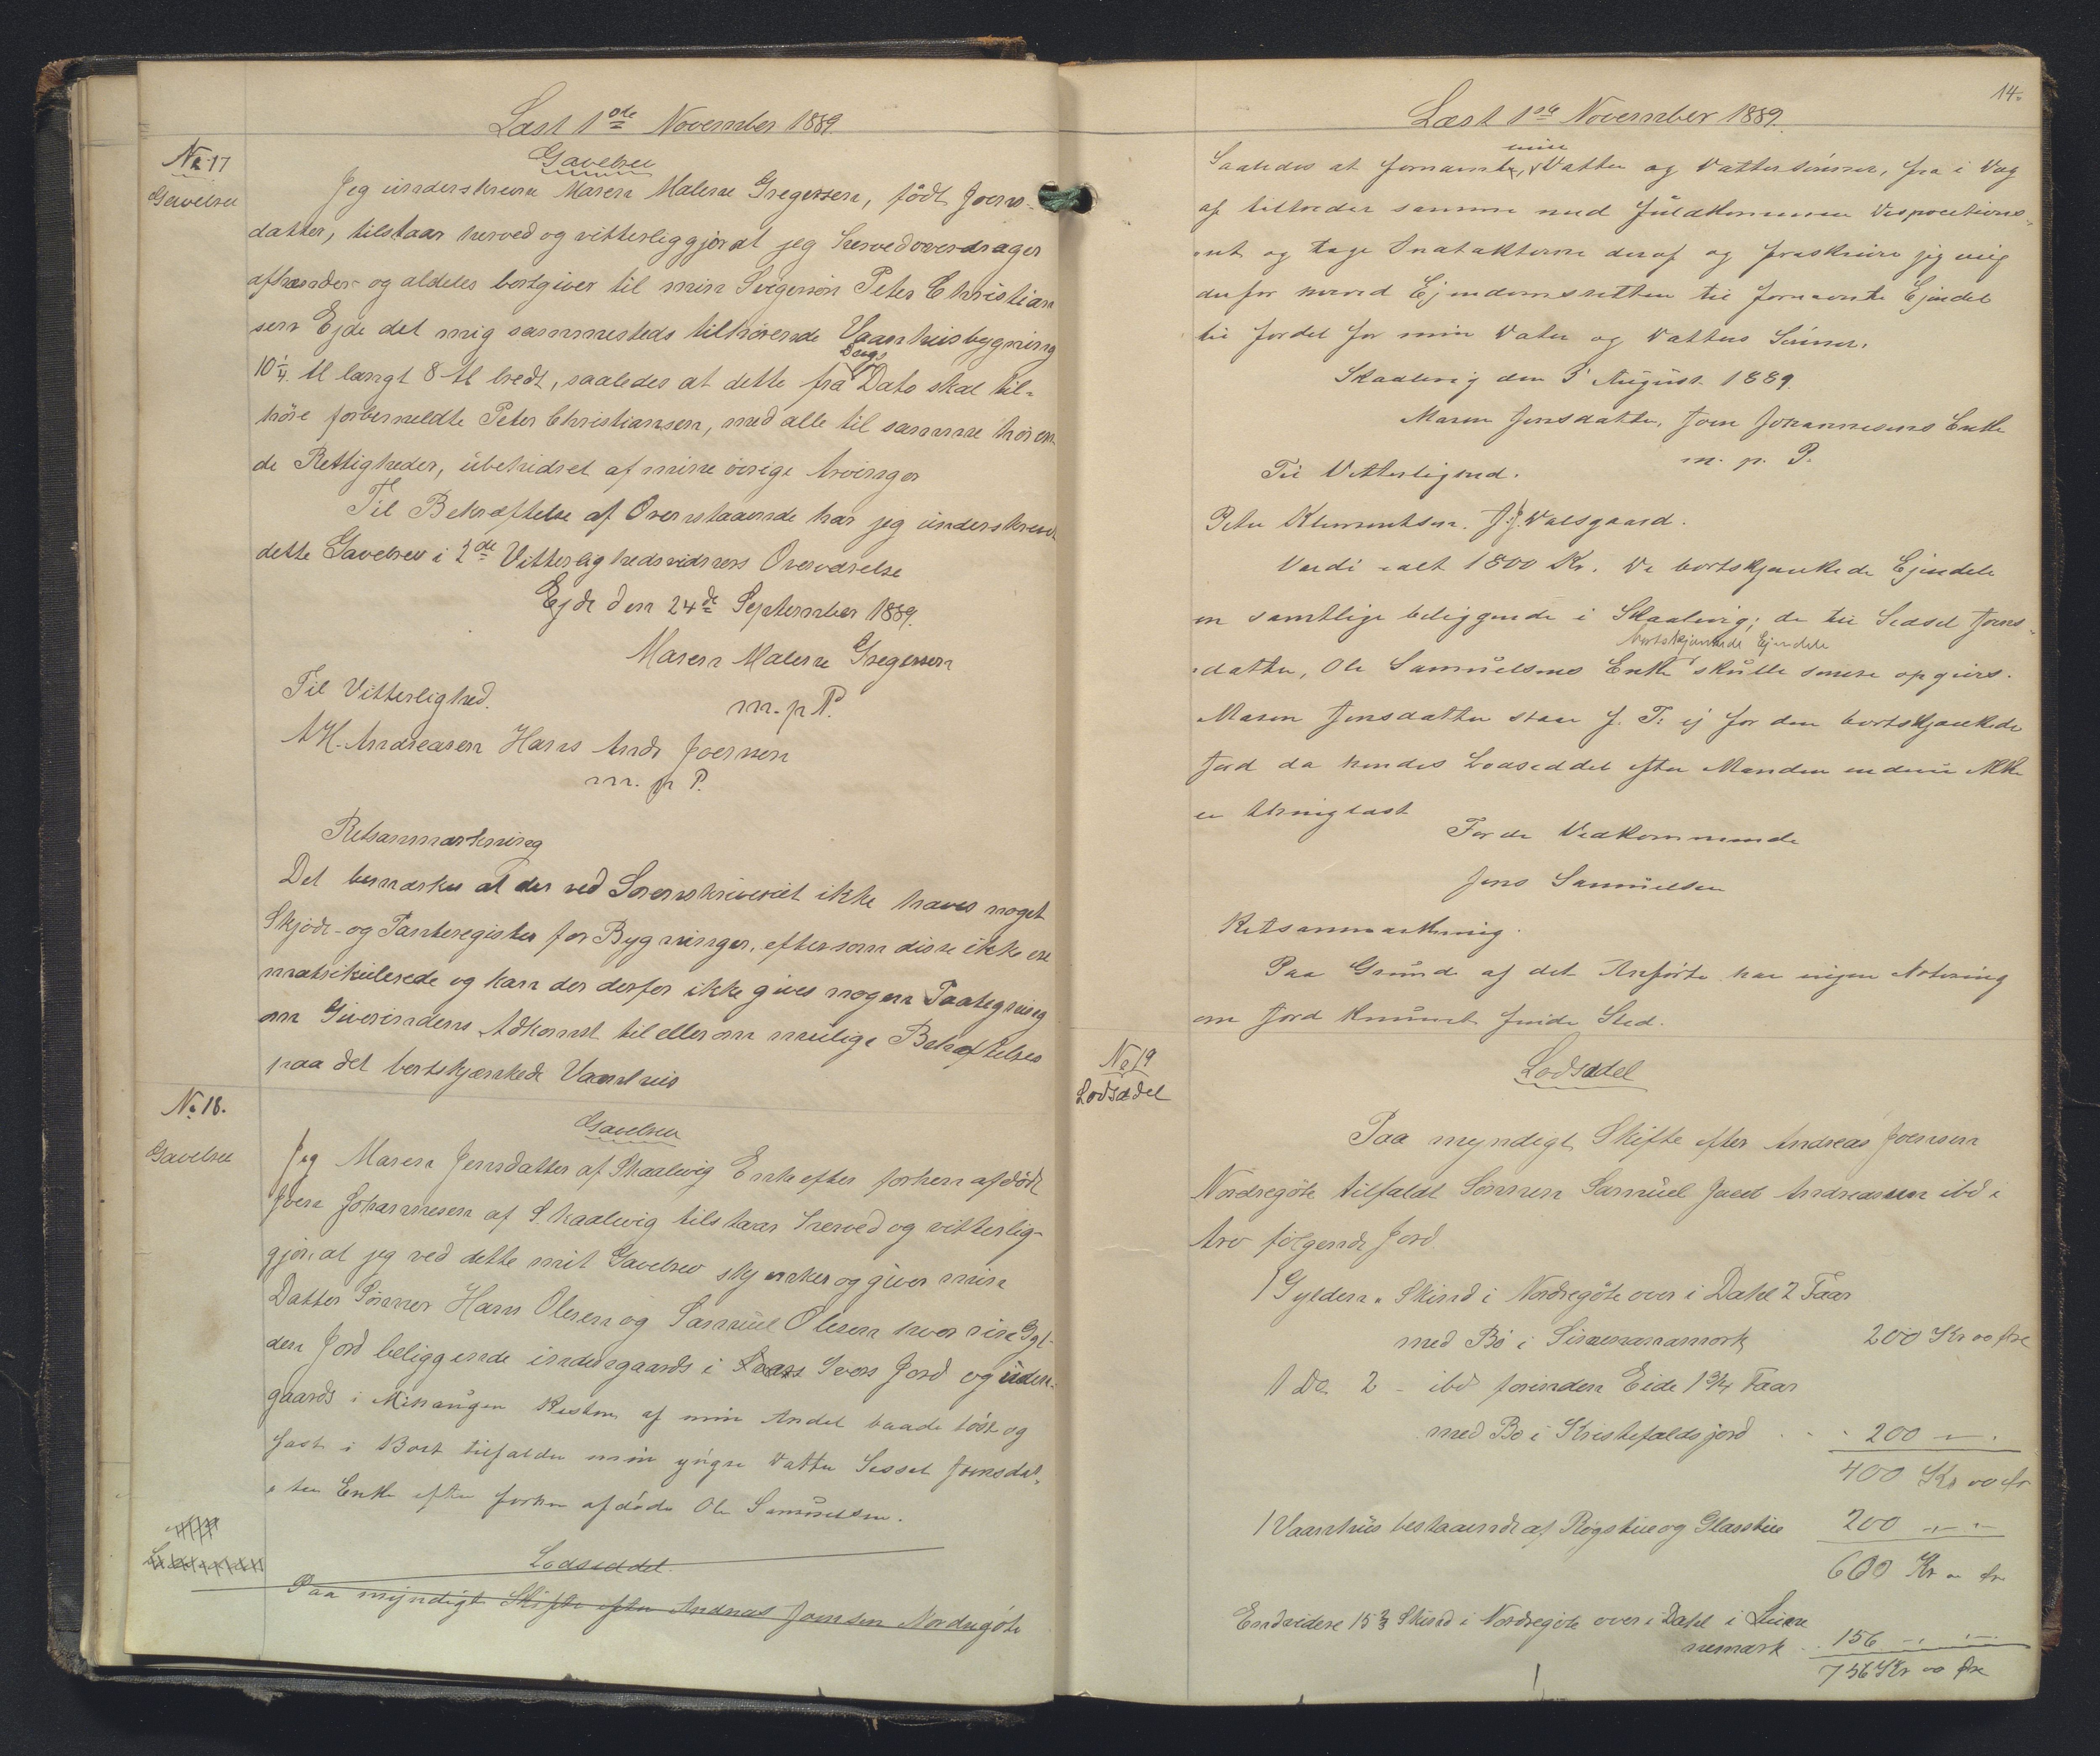 Læst 1ste November 1889.
No 17
Gavebrev
Gavebrev
Jeg underskrevne Maren Malene Gregersen, född Joens-
datter, tilstaar herved og vitterliggjör at jeg herved overdrager
afhænder og aldeles bortgiver til min Svigersön Peter Christian
sen Ejde det mig sammesteds tilhörende Vaanhusbygning
Dags
10 1/4 Al langt 8 Al bredt, saaledes at dette fra Dato skal til-
höre forbemeldte Peter Christiansen, med alle til samme hören
de Rettigheder, ubehindret af mine övrige Arvinger
Til Bekræftelse af Ovenstaaende har jeg underskrevet
dette Gavebrev i 2de Vitterlighedsvidners Overværelse
Ejde den 24de September 1889.
Maren Malene Gregersen
m. p P.
Til Vitterlighed.
A H. Andreasen Hans Andr Joensen
m. p P.
Retsanmærkning
Det bemærkes at der ved Sorenskriveriet ikke haves noget
Skjöde- og Panteregister for Bygninger, eftersom disse ikke ere
matrikulerede og kan der derfor ikke gives nogen Paategning
om Giverindens Adkomst til eller om mulige Behæftelser
paa det bortskjænkede Vaanhus
No 18.
Gavebrev
Gavebrev
Jeg Maren Jensdatter af Skaalevig Enke efter forhen afdöde
Joen Johannesen af Skaalevig tilstaar herved og vitterlig-
gjör, at jeg ved dette mit Gavebrev skjænker og giver min
Datter Sönner Hans Olesen og Samuel Olesen hver sin Gyl-
den Jord beliggende indengaards i Ivers Jord og uden-
gaards i Resten af min Andel baade löst og
fast i Boet tilfalder min yngre Datter Sessel Joensdat-
ter Enke efter forhen afdöde Ole Samuelsen.
Lodseddel
Paa myndigt Skifte efter Andreas Joensen Nordregöte
14.
Læst 1ste November 1889.
min
Saaledes at fornævnte, Datter og Dattersönner, fra i Dag
af tiltræder samme med fuldkommen Dispositions-
ret og tage Indtægterne deraf og fraskriver jeg mig
derfor herved Ejendomsretten til fornævnte Ejendel
til Fordel for min Datter og Datters Sönner.
Skaalevig den 5 August 1889.
Maren Jensdatter, Joen Johannesens Enke
m. p. P.
Til Vitterlighed.
Peter Klementsen. J. J. Dalsgaard.
Værdi ialt 1800 Kr. De bortskjænkede Ejendele
ere samtlige beliggende i Skaalevig; de til Sessel Joens-
bortskjænkede Ejendele
datter, Ole Samuelsens Enke skulle senere opgives.
Maren Jensdatter staar f. T. ej for den bortskjænkede
Jord da hendes Lodseddel efter Manden endnu ikke
er thinglæst
For de Vedkommende
Jens Samuelsen
Retsanmærkning.
Paa Grund af det Anförte har ingen Notering
om Jord kunnet finde Sted.
No 19
Lodsedel
Lodsedel
Paa myndigt Skifte efter Andreas Joensen
Nordregöte tilfaldt Sönnen Samuel Jacob Andreassen ibd i
Arv fölgende Jord
1 Gylden " Skind i Nordregöte over i Dahl 2 Faar
med Bö i 200 Kr 00 Öre
1 Do 2 - ibd forinden Eide 1 3/4 Faar
med Bö i Kristefaldsjord . . . 200 - " .
400 Kr 00 Ör
1 Vaanhus bestaaende af Rögstue og Glasstue 200 - " -
600 Kr " Öre
Endvidere 15 2/3 Skind i Nordregöte over i Dahl i
nemark . . 156 - " -
756 Kr 00 Öre